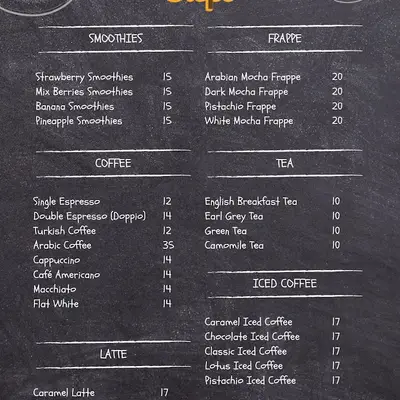 SMOOTHIES
Strawberry Smoothies 15
Mix Berries Smoothies 15
Banana Smoothies 15
Pineapple Smoothies 15
COFFEE
Single Espresso 12
Double Espresso (Doppio) 14
Turkish Coffee 12
Arabic Coffee 35
Cappuccino 14
Café Americano 14
Macchiato 14
Flat White 14
LATTE
Caramel Latte 17
FRAPPE
Arabian Mocha Frappe 20
Dark Mocha Frappe 20
Pistachio Frappe 20
White Mocha Frappe 20
TEA
English Breakfast Tea 10
Earl Grey Tea 10
Green Tea 10
Camomile Tea 10
ICED COFFEE
Caramel Iced Coffee 17
Chocolate Iced Coffee 17
Classic Iced Coffee 17
Lotus Iced Coffee 17
Pistachio Iced Coffee 17